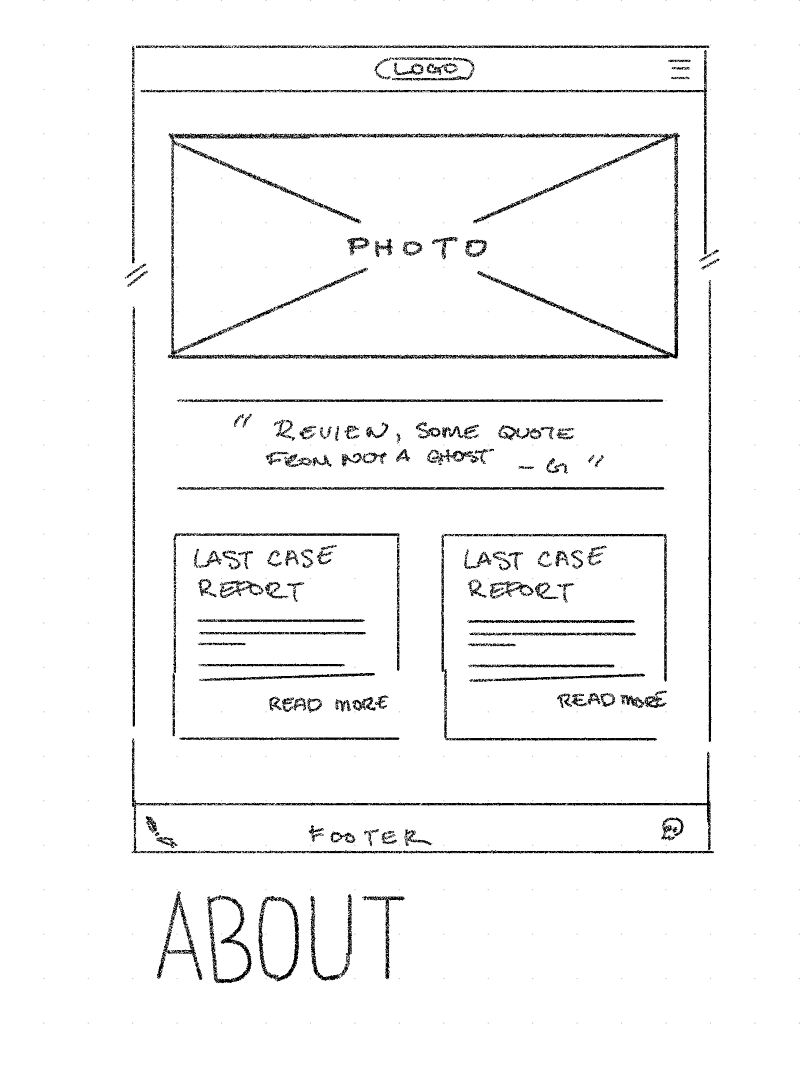 LOGO
PHOTO
" REVIEW, SOME QUOTE
FROM NOT A GHOST — G "
LAST CASE
REPORT
READ MORE
LAST CASE
REPORT
READ MORE
FOOTER
ABOUT